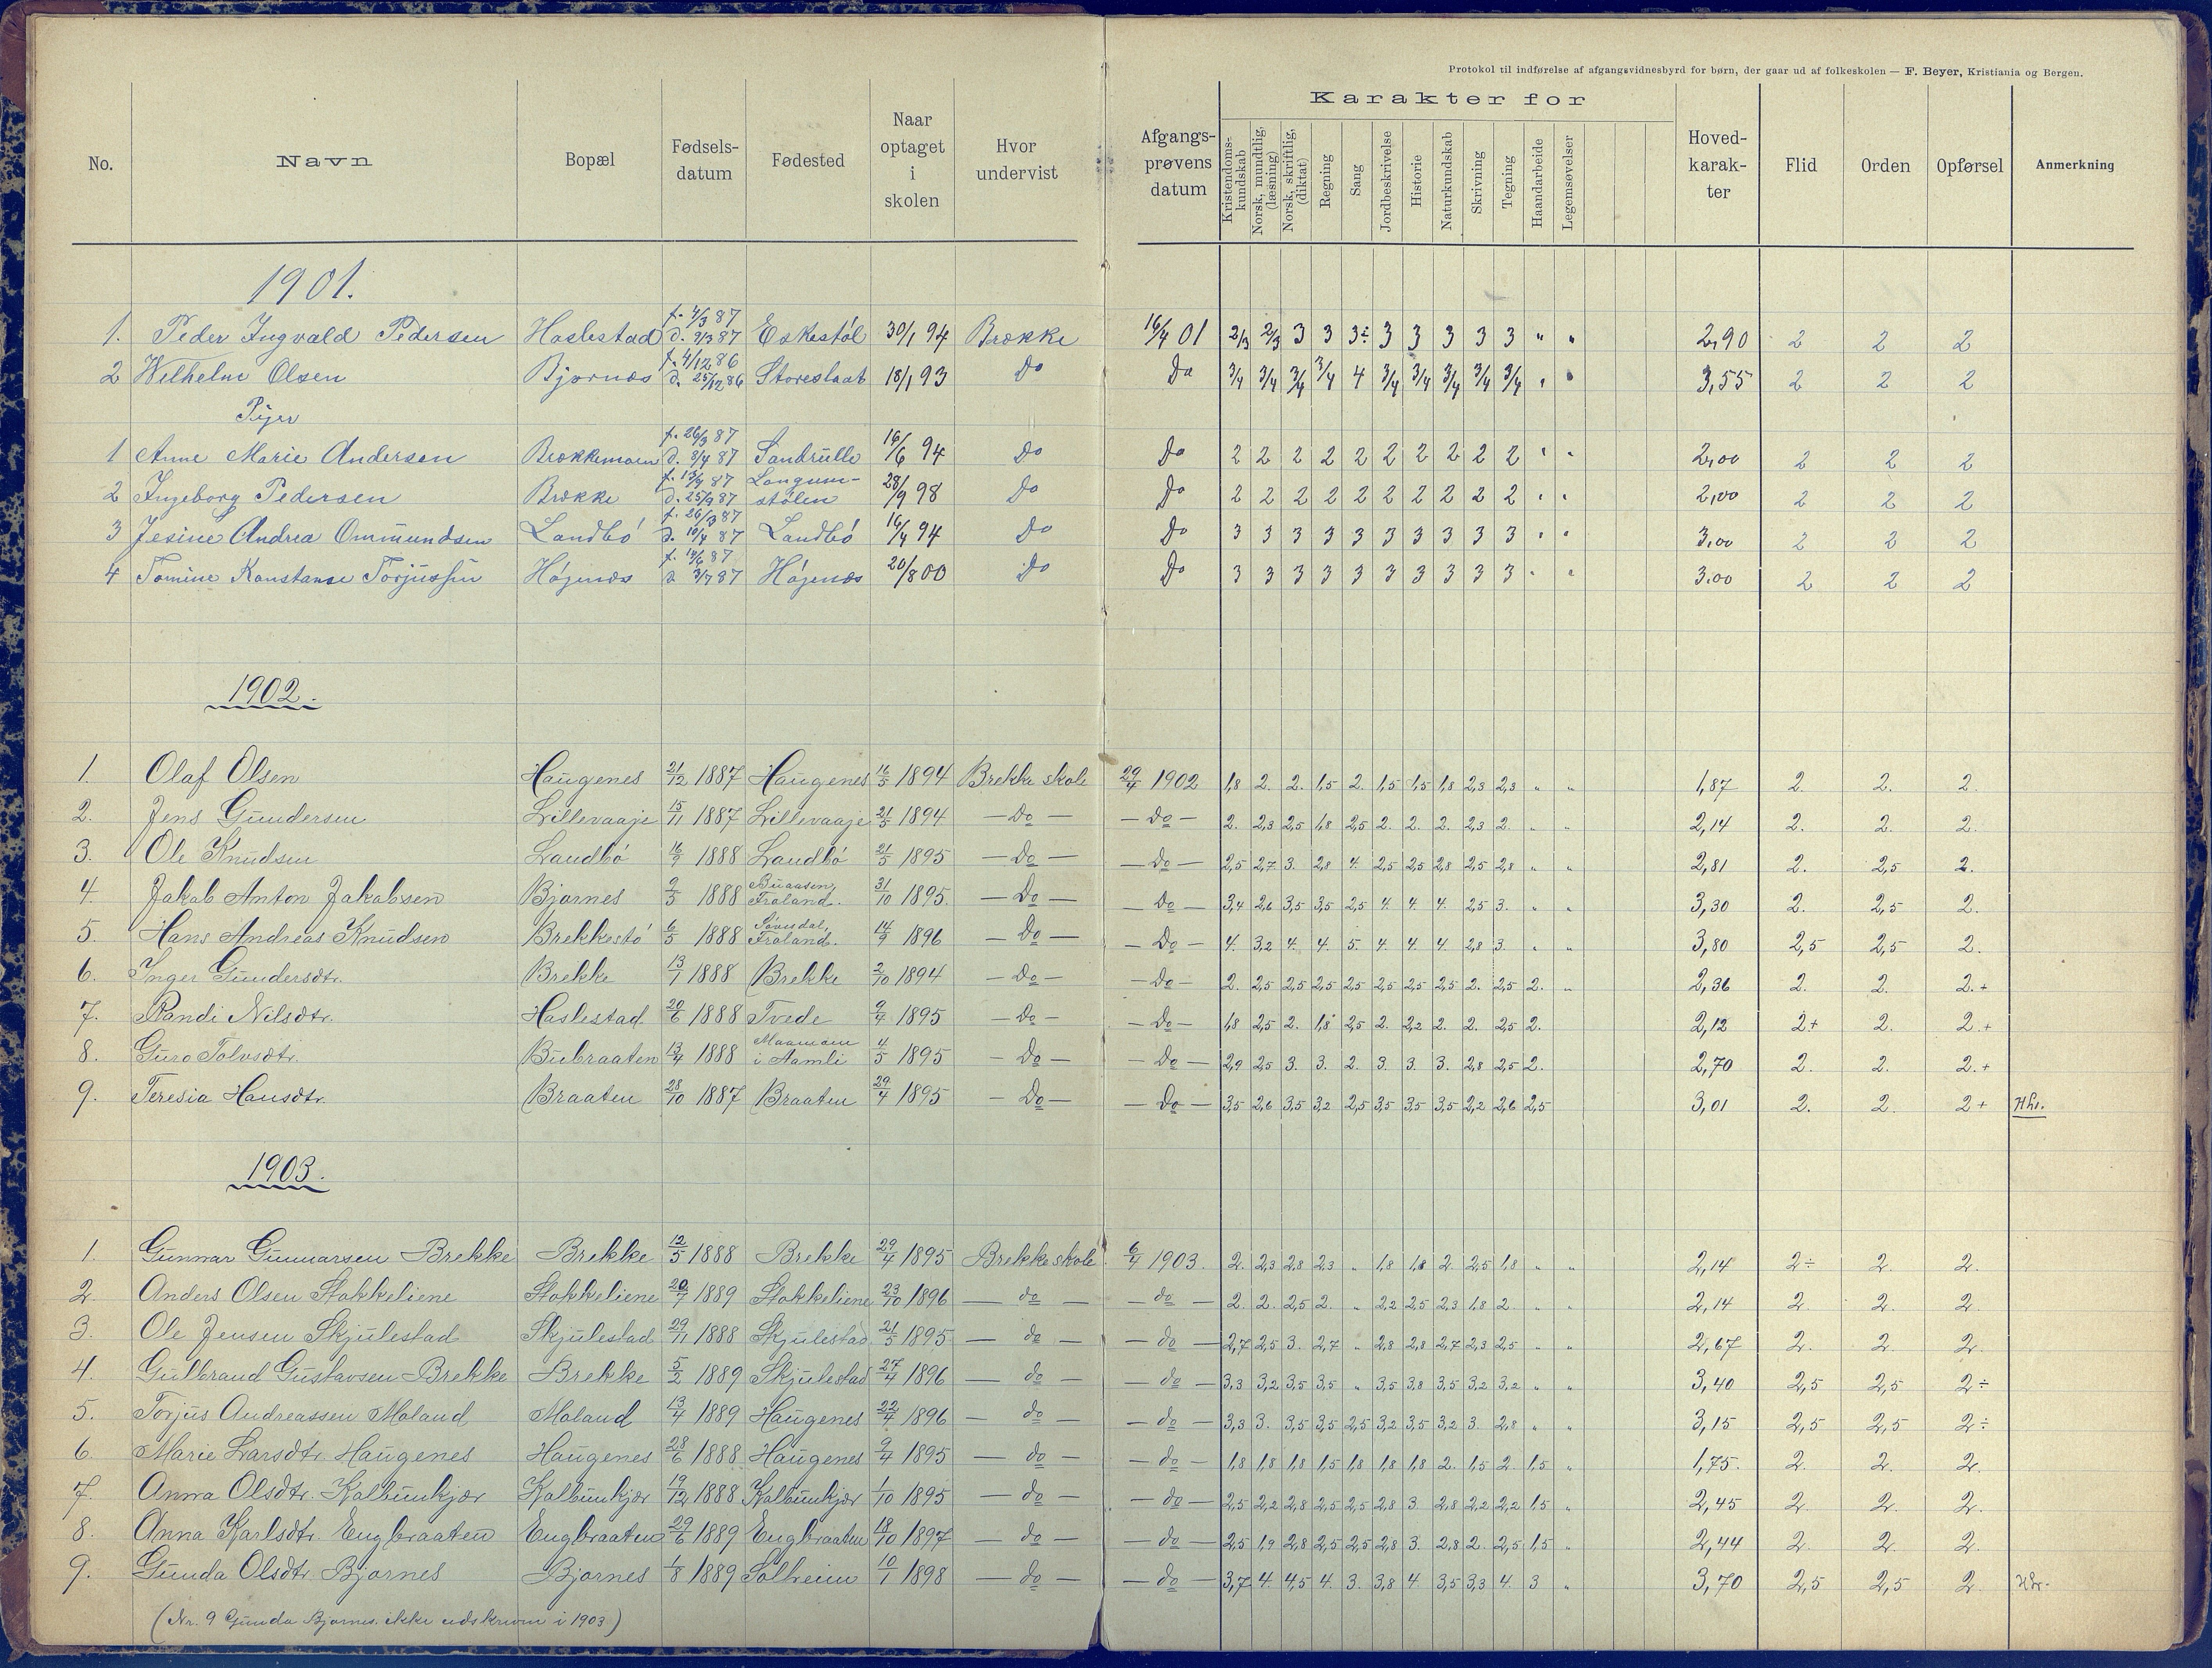 Protokol til indførelse af afgangsvidnesbyrd for børn, der gaar ud af folkeskolen — F. Beyer, Kristiania og Bergen.
No. Navn Bopæl Fødsels-datum Fødested Naar optaget i skolen Hvor undervist Afgangs-prøvens datum Karakter for Kristendoms-kundskab Norsk, mundtlig, (læsning) Norsk, skriftlig, (diktat) Regning Sang Jordbeskrivelse Historie Naturkundskab Skrivning Tegning Haandarbeide Legemsøvelser Hoved-karak-ter Flid Orden Opførsel Anmerkning
1901.
1. Peder Ingvald Pedersen Haslestad f. 4/3 87 d. 9/3 87 Eskestøl 30/1 94 Brække 16/4 01 2/3 2/3 3 3 3÷ 3 3 3 3 3 " " 2,90 2 2 2
2 Wilhelm Olsen Bjørnæs f. 4/12 86 d. 25/12 86 Storeslaat 18/1 93 Do Do 3/4 3/4 3/4 3/4 4 3/4 3/4 3/4 3/4 3/4 " " 3,55 2 2 2
Piger
1 Anne Marie Andersen Brækkemoen f. 26/3 87 d. 8/4 87 Sandrulle 16/6 94 Do Do 2 2 2 2 2 2 2 2 2 2 " " 2,00 2 2 2
2 Ingeborg Pedersen Brække f. 13/9 87 d. 25/9 87 Langum-stølen 28/9 98 Do Do 2 2 2 2 2 2 2 2 2 2 " " 2,00 2 2 2
3 Jesine Andrea Ommundsen Landbø f. 26/3 87 d. 10/4 87 Landbø 16/4 94 Do Do 3 3 3 3 3 3 3 3 3 3 " " 3,00 2 2 2
4 Tomine Konstanse Torjussen Høgenæs f. 14/6 87 d. 3/7 87 Høgenæs 20/8 00 Do Do 3 3 3 3 3 3 3 3 3 3 " " 3,00 2 2 2
1902.
1. Olaf Olsen Haugenes 21/12 1887 Haugenes 16/5 1894 Brekke skole 29/4 1902 1,8 2. 2. 1,5 2. 1,5 1,5 1,8 2,3 2,3 " " 1,87 2. 2. 2.
2. Jens Gundersen Lillevaaje 15/11 1887 Lillevaaje 21/5 1894 — Do — — Do — 2. 2,3 2,5 1,8 2,5 2. 2. 2. 2,3 2. " " 2,14 2. 2. 2.
3. Ole Knudsen Landbø 16/9 1888 Landbø 21/5 1895 — Do — — Do — 2,5 2,7 3. 2,8 4. 2,5 2,5 2,8 2,5 2,8 " " 2,81 2. 2,5 2.
4. Jakob Anton Jakobsen Bjørnes 9/5 1888 Buaasen, Froland. 31/10 1895. — Do — — Do — 3,4 2,6 3,5 3,5 2,5 4. 4. 4. 2,5 3. " " 3,30 2. 2,5 2.
5. Hans Andreas Knudsen Brekkestø 6/5 1888 Froland. 14/9 1896 — Do — — Do — 4. 3,2 4. 4. 5. 4. 4. 4. 2,8 3. " " 3,80 2,5 2,5 2.
6. Inger Gundersdtr. Brekke 13/1 1888 Brekke 2/10 1894 — Do — — Do — 2. 2,5 2,5 2,5 2,5 2,5 2,5 2,5 2. 2,5 2. " 2,36 2. 2. 2.+
7. Randi Nilsdtr. Haslestad 20/6 1888 Tvede 9/4 1895 — Do — — Do — 1,8 2,5 2. 1,8 2,5 2. 2,2 2. 2. 2,5 2. 2,12 2+ 2. 2.+
8. Guro Tolvsdtr. Bubraaten 13/4 1888 i Aamli 4/5 1895 — Do — — Do — 2,9 2,5 3. 3. 2. 3. 3. 3. 2,8 2,5 2. 2,70 2. 2. 2.+
9. Teresia Hansdtr. Braaten 28/10 1887 Braaten 29/4 1895 — Do — — Do — 3,5 2,6 3,5 3,2 2,5 3,5 3,5 3,5 2,2 2,6 2,5 3,01 2. 2. 2+
1903.
1. Gunnar Gunnarsen Brekke Brekke 12/5 1888 Brekke 29/4 1895 Brekke skole 6/4 1903. 2. 2,3 2,8 2,3 " 1,8 1,8 2. 2,5 1,8 " " 2,14 2÷ 2. 2.
2. Anders Olsen Stokkeliene Stokkeliene 20/7 1889 Stokkeliene 23/10 1896 — do — — do — 2. 2. 2,5 2. " 2,2 2,5 2,3 1,8 2 " " 2,14 2. 2. 2.
3. Ole Jensen Skjulestad Skjulestad 29/11 1888 Skjulestad 21/5 1895 — do — — do — 2,7 2,5 3. 2,7 " 2,8 2,8 2,7 2,3 2,5 " " 2,67 2. 2. 2.
4. Gulbrand Gustavsen Brekke Brekke 5/2 1889 Skjulestad 27/4 1896 — do — — do — 3,3 3,2 3,5 3,5 " 3,5 3,8 3,5 3,2 3,2 " " 3,40 2,5 2,5 2÷
5. Torjus Andreassen Moland Moland 13/4 1889 Haugenes 22/4 1896 — do — — do — 3,3 3. 3,5 3,5 2,5 3,2 3,5 3,2 3. 2,8 " " 3,15 2,5 2,5 2÷
6. Marie Larsdtr. Haugenes Haugenes 28/6 1888 Haugenes 9/4 1895 — do — — do — 1,8 1,8 1,8 1,5 1,8 1,8 1,8 2. 1,5 2. 1,5 " 1,75. 2. 2. 2.
7. Anna Olsdtr. Kalbunkjær Kalbunkjær 19/12 1888 Kalbunkjær 1/10 1895 — do — — do — 2,5 2,2 2,8 2,5 2,5 2,8 3. 2,8 2,2 2,2 1,5 " 2,45 2. 2. 2.
8. Anna Karlsdtr. Engbraaten Engbraaten 29/6 1889 Engbraaten 18/10 1897 — do — — do — 2,5 1,9 2,8 2,5 2,5 2,8 3. 2,8 2. 2,5 1,5 " 2,44 2. 2. 2.
9. Gunda Olsdtr. Bjørnes Bjørnes 1/8 1889 Solheim 10/1 1898 — do — — do — 3,7 4. 4,5 4. 3. 3,8 4. 3,5 3,3 4. 3 " 3,70 2,5 2,5 2
(Nr. 9 Gunda Bjørnes ikke udskreven i 1903)